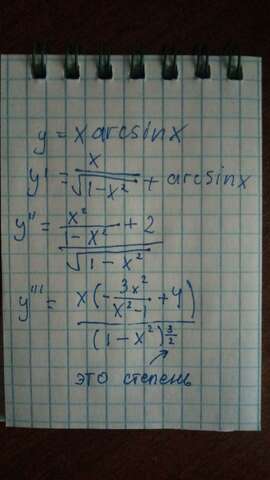 y = x arcsin x
y' = x / √(1-x²) + arcsin x
y'' = (x² / (1-x²) + 2) / √(1-x²)
y''' = x(-3x² / (x²-1) + 4) / (1-x²)^(3/2)
это степень